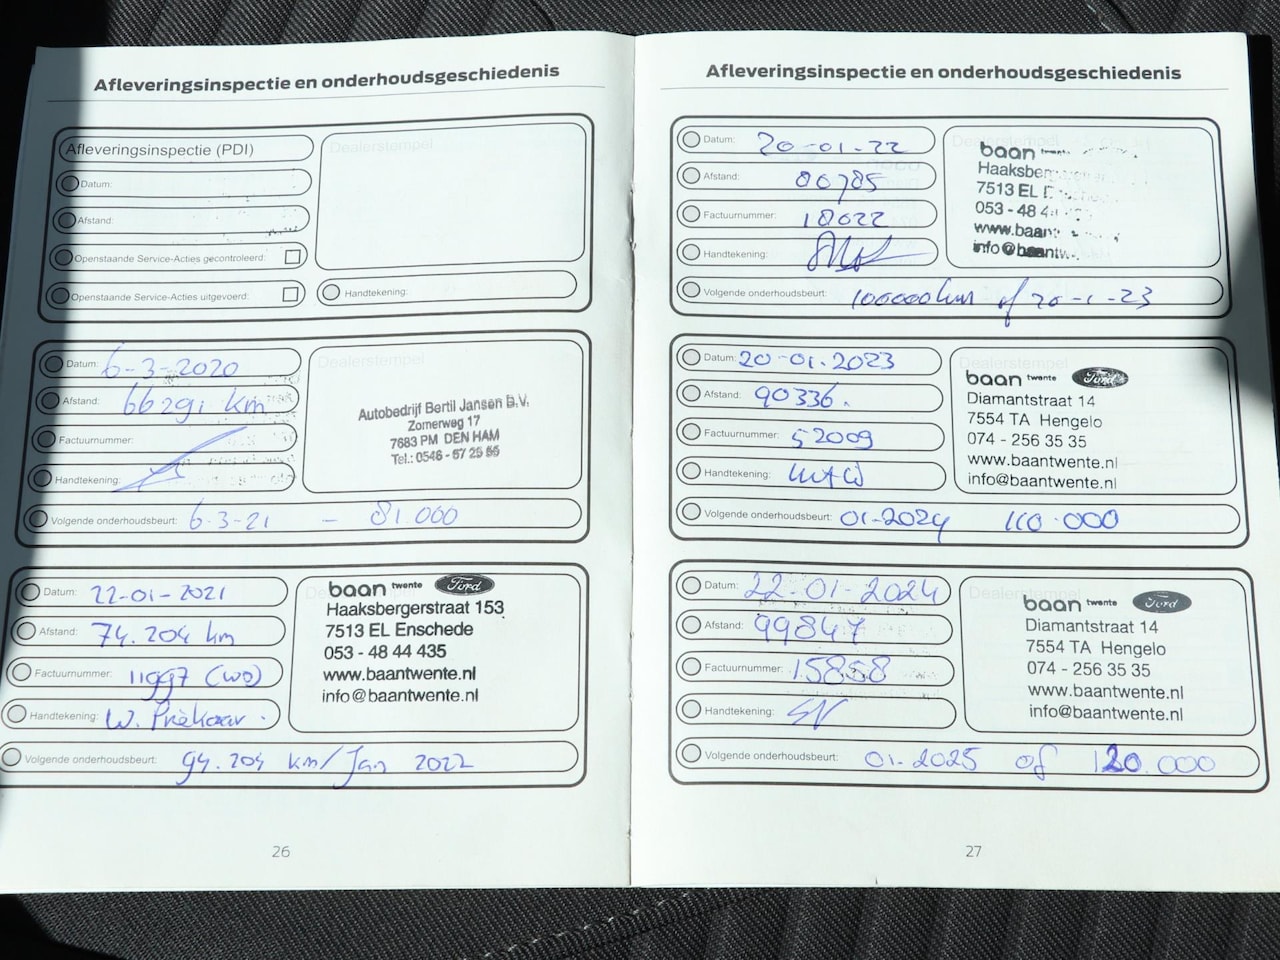 Afleveringsinspectie en onderhoudsgeschiedenis
Afleveringsinspectie (PDI)
Dealerstempel
Datum:
Afstand:
Openstaande Service-Acties gecontroleerd:
Openstaande Service-Acties uitgevoerd:
Handtekening:
Datum: 6-3-2020
Afstand: 66291 km
Factuurnummer:
Handtekening:
Volgende onderhoudsbeurt: 6-3-21 - 81.000
Dealerstempel
Autobedrijf Bertil Jansen B.V.
Zomerweg 17
7683 PM DEN HAM
Tel.: 0546 - 67 25 55
Datum: 22-01-2021
Afstand: 74.204 km
Factuurnummer: 11997 (WO)
Handtekening:
Volgende onderhoudsbeurt: 94.204 km/Jan 2022
baan twente Ford
Haaksbergerstraat 153
7513 EL Enschede
053 - 48 44 435
www.baantwente.nl
info@baantwente.nl
26
Afleveringsinspectie en onderhoudsgeschiedenis
Datum: 20-01-22
Afstand: 80785
Factuurnummer: 18022
Handtekening:
Volgende onderhoudsbeurt: 100000km of 20-1-23
Dealerstempel
baan twente
7513 EL
053 - 48 4
www.baan
info@baantw
Datum: 20-01-2023
Afstand: 90336.
Factuurnummer: 52009
Handtekening:
Volgende onderhoudsbeurt: 01-2024 110.000
Dealerstempel
baan twente Ford
Diamantstraat 14
7554 TA Hengelo
074 - 256 35 35
www.baantwente.nl
info@baantwente.nl
Datum: 22-01-2024
Afstand: 99847
Factuurnummer: 15858
Handtekening:
Volgende onderhoudsbeurt: 01-2025 of 120.000
Dealerstempel
baan twente Ford
Diamantstraat 14
7554 TA Hengelo
074 - 256 35 35
www.baantwente.nl
info@baantwente.nl
27